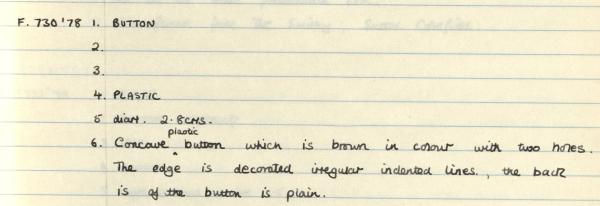 F. 730'78 1. BUTTON
2.
3.
4. PLASTIC
5 diam. 2.8cms.
6. Concave plastic button which is brown in colour with two holes.
The edge is decorated irregular indented lines., the back
is of the button is plain.